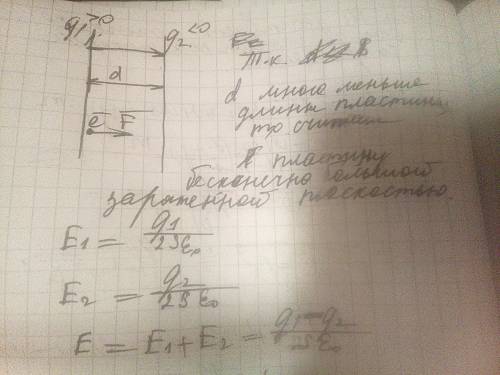 q₁>0
q₂<0
d
e F
Т.к.
d много меньше
длины пластины,
то считаем
пластину
бесконечно большой
заряженной плоскостью.
E₁ = q₁/2Sε₀
E₂ = q₂/2Sε₀
E = E₁ + E₂ = q₁-q₂/2Sε₀